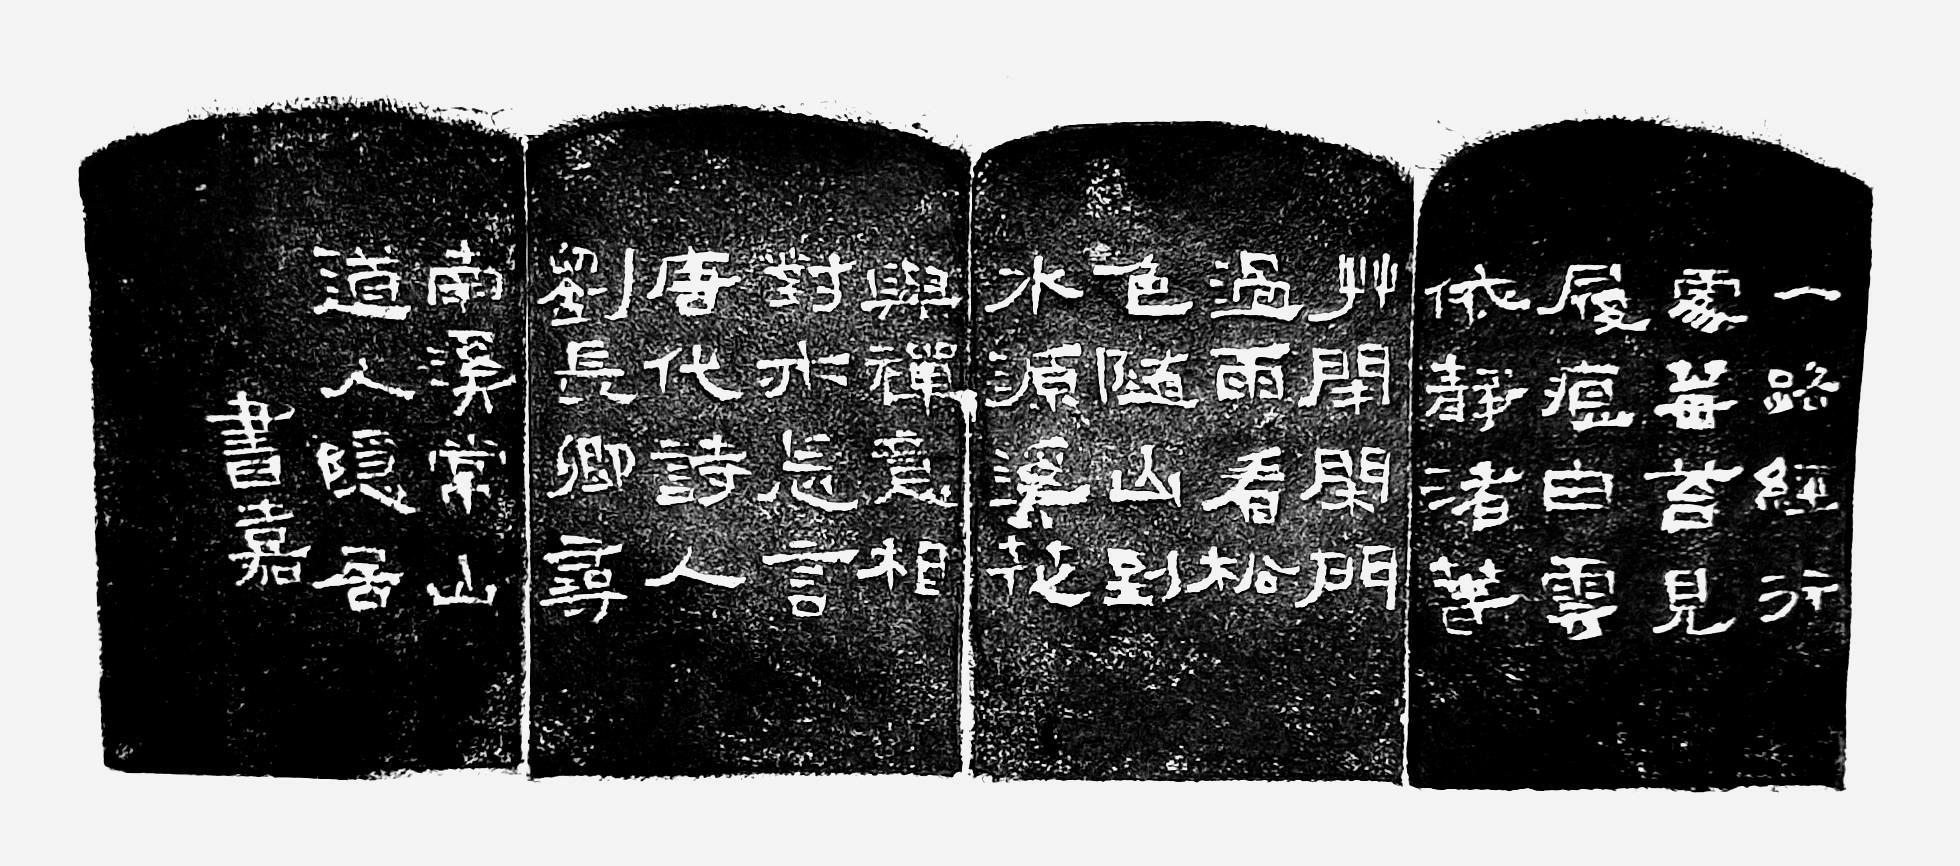 一路經行
處莓苔見
履痕白雲
依靜渚萅
艸閉閑門
過雨看松
色隨山到
水源溪花
與禪意相
對亦忘言
唐代詩人
劉長卿尋
南溪常山
道人隱居
書嘉